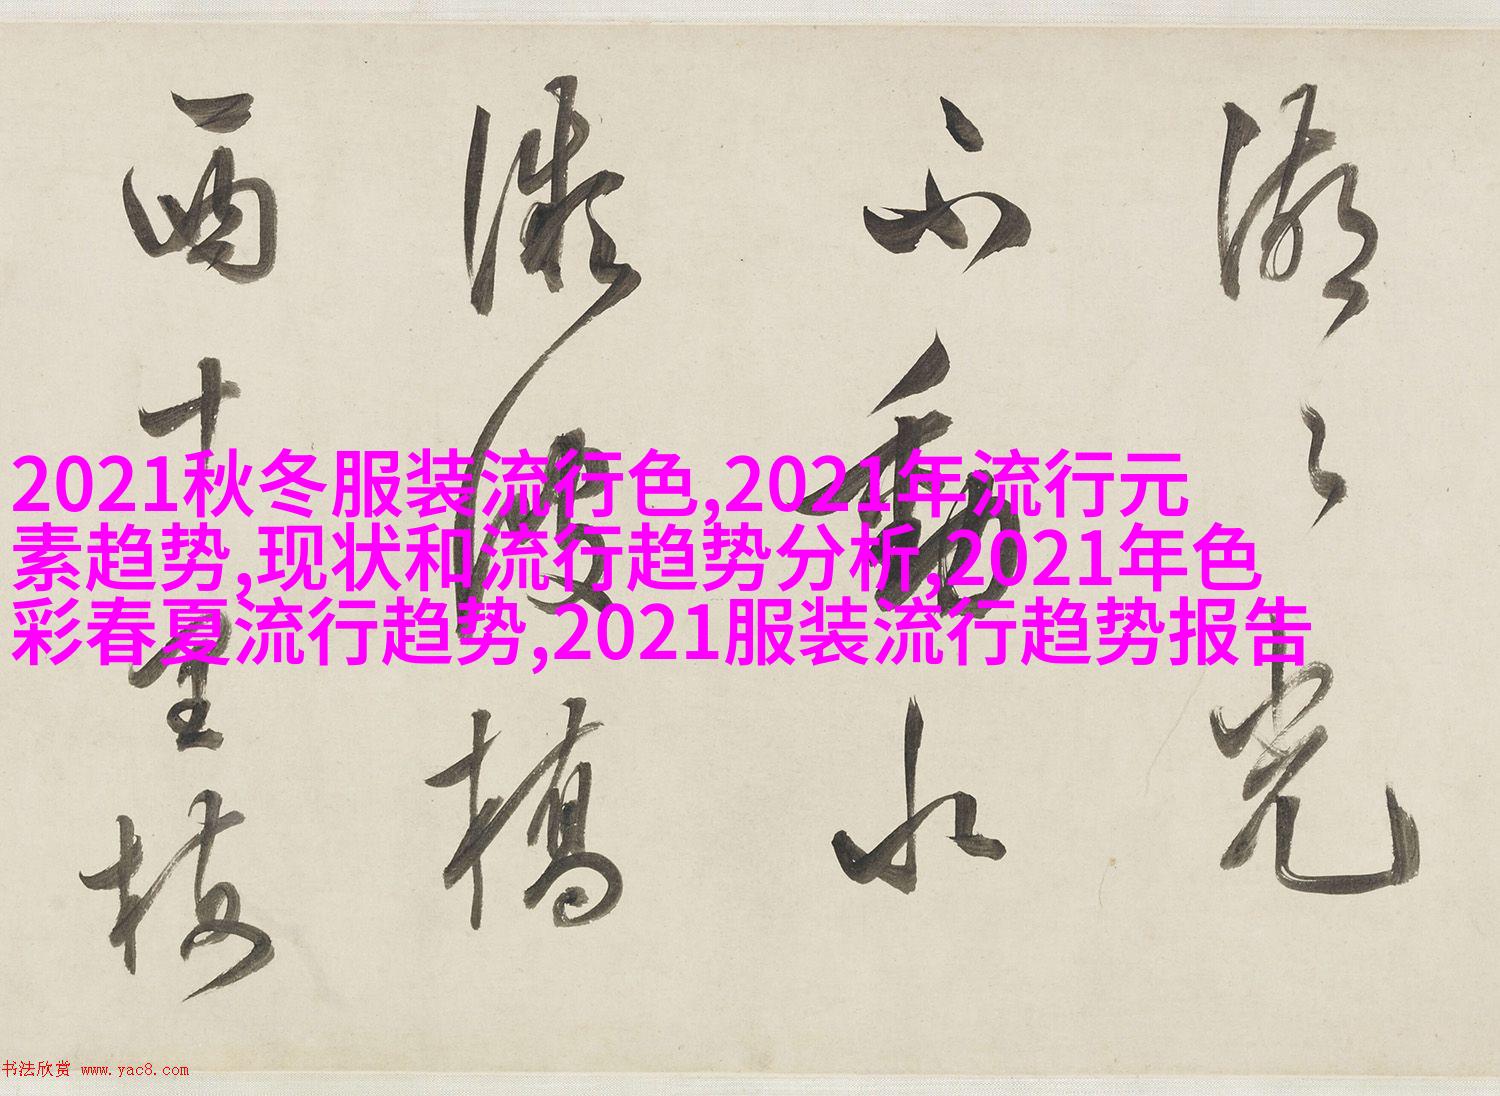 2021秋冬服装流行色,2021年流行元
素趋势,现状和流行趋势分析,2021年色
彩春夏流行趋势,2021服装流行趋势报告
湖光
不動水
渡橋
西十里梅
书法欣赏 www.yac8.com